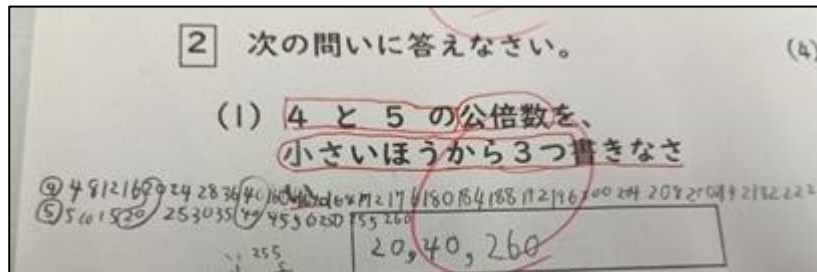 2 次の問いに答えなさい。 (4)
(1) 4 と 5 の公倍数を、
小さいほうから3つ書きなさ
④ 4 8 12 16 20 24 28 36 40 180 184 188 192 196 200 204 208
⑤ 5 10 15 20 25 30 35 40 45 50 250 255 260
255
20, 40, 260